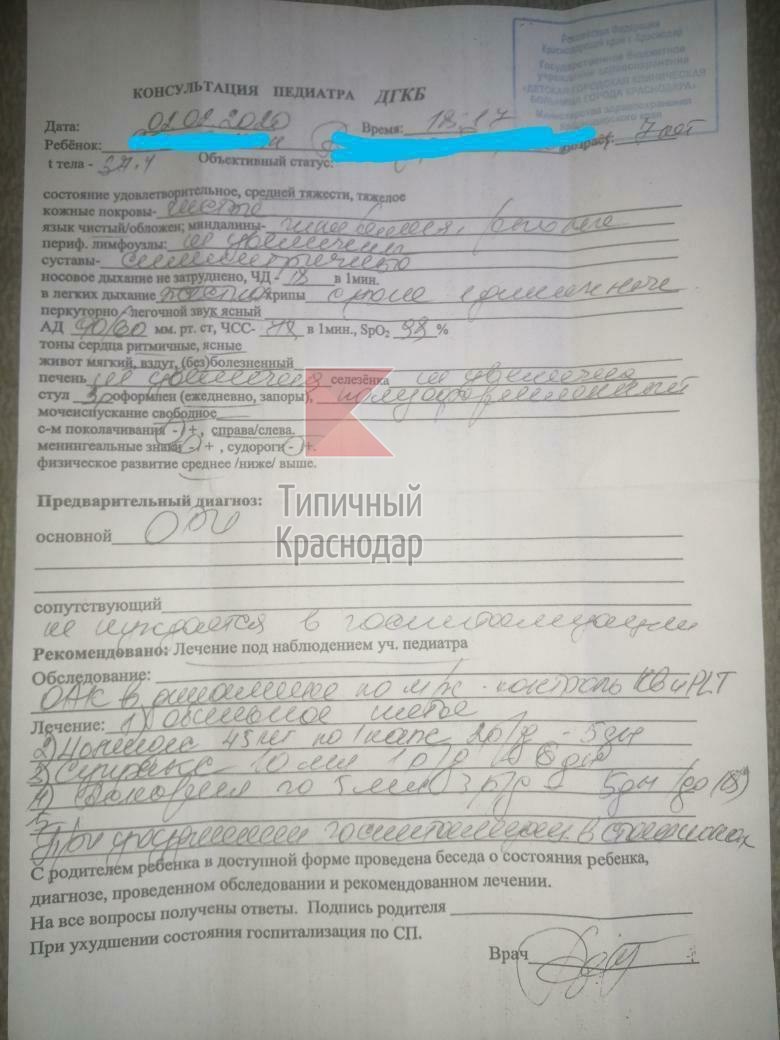 Российская Федерация
Краснодарский край г. Краснодар
Государственное бюджетное
учреждение здравоохранения
«ДЕТСКАЯ ГОРОДСКАЯ КЛИНИЧЕСКАЯ
БОЛЬНИЦА ГОРОДА КРАСНОДАРА»
Министерства здравоохранения
Краснодарского края
КОНСУЛЬТАЦИЯ ПЕДИАТРА ДГКБ
Дата: 02.02.2020 Время: 18:17
Ребёнок: возраст: 7 лет
t тела - Объективный статус:
состояние удовлетворительное, средней тяжести, тяжелое
кожные покровы- чистые
язык чистый/обложен; миндалины-
периф. лимфоузлы: не увеличены
суставы-
носовое дыхание не затруднено, ЧД - 18 в 1мин.
в легких дыхание хрипы единичные
перкуторно легочной звук ясный
АД 90/60 мм. рт. ст, ЧСС- в 1мин., SpO₂ 98 %
тоны сердца ритмичные, ясные
живот мягкий, вздут, (без)болезненный
печень не увеличена селезёнка не увеличена
стул оформлен (ежедневно, запоры),
мочеиспускание свободное
с-м поколачивания -/+, справа/слева.
менингеальные знаки -/+, судороги -/+.
физическое развитие среднее /ниже/ выше.
Предварительный диагноз:
основной
Типичный
Краснодар
сопутствующий
не нуждается в госпитализации
Рекомендовано: Лечение под наблюдением уч. педиатра
Обследование:
ОАК в динамике по м/ж - контроль КВ и PLT
Лечение: 1) обильное питье
2) 45 мг по 1 капс 2 р/д - 5 дн
3) Супракс 10 мл 1 р/д
4) по 5 мл 3 р/д - 5 дн
При госпитализация в стационар
С родителем ребенка в доступной форме проведена беседа о состояния ребенка,
диагнозе, проведенном обследовании и рекомендованном лечении.
На все вопросы получены ответы. Подпись родителя
При ухудшении состояния госпитализация по СП.
Врач